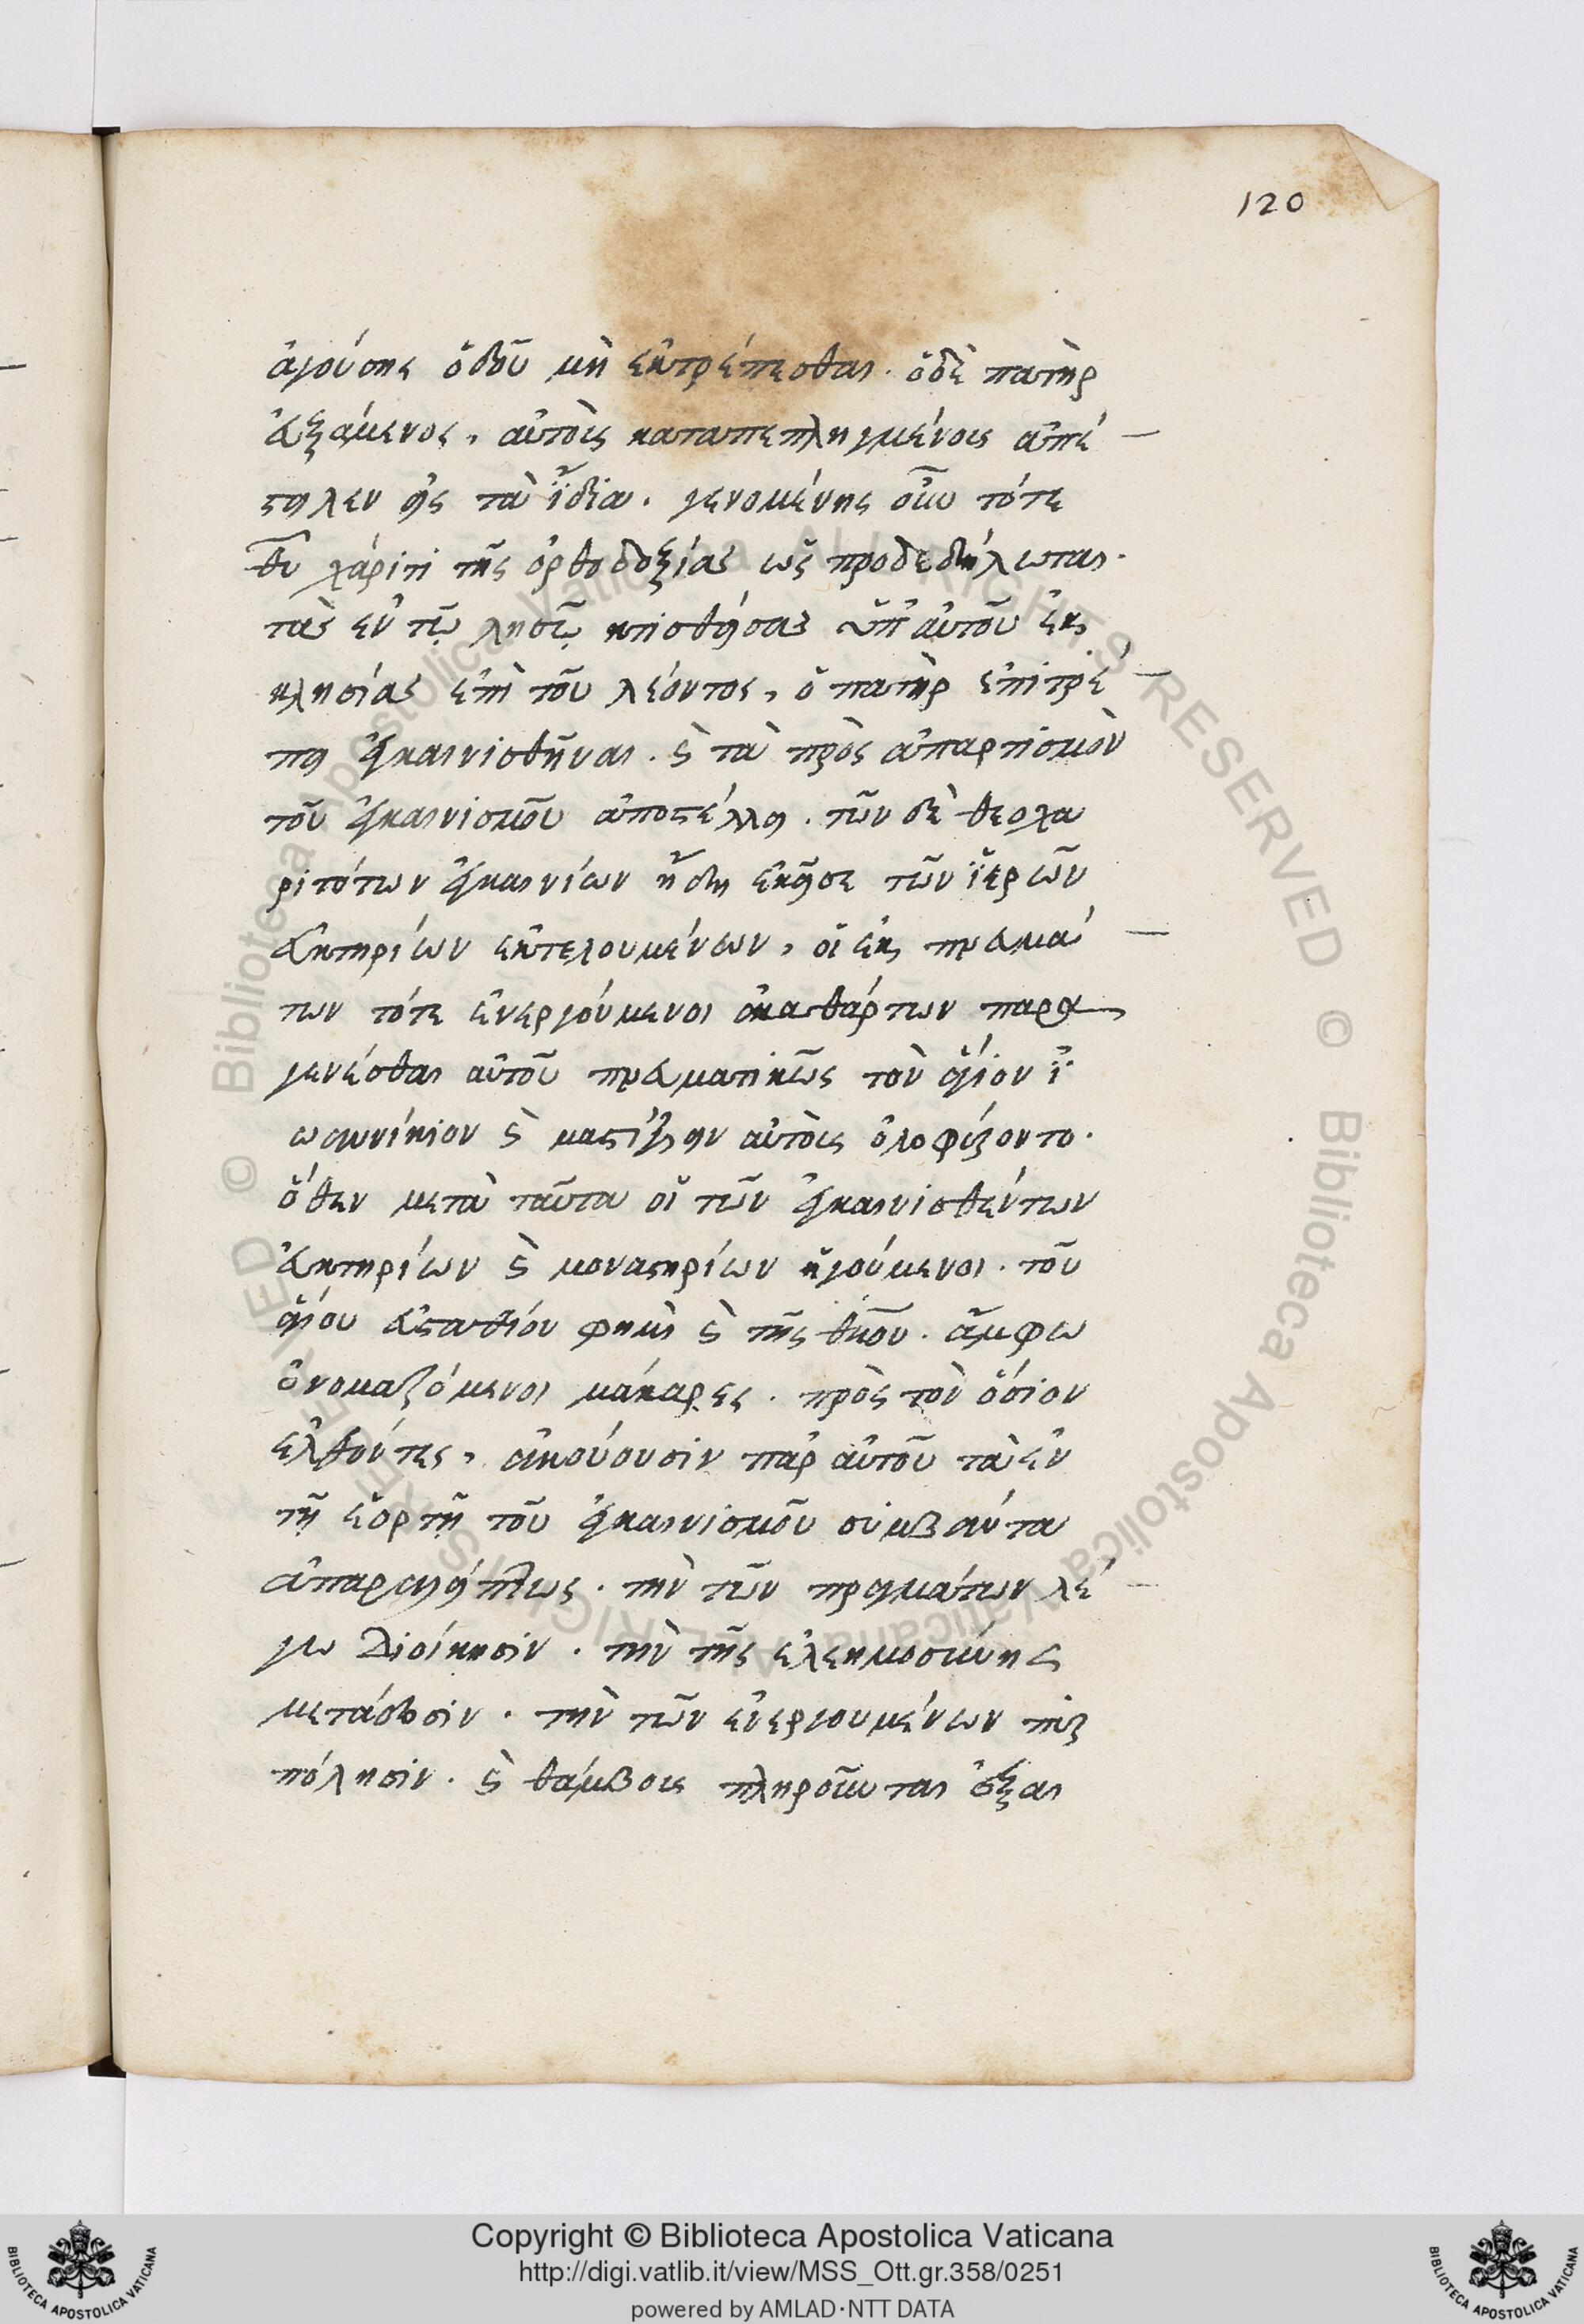 120
ἀγούσης ὁδοῦ μὴ ἐκτρέπεσθαι. ὁδὲ πατὴρ
εὐξάμενος, αὐτοῖς καταπεπληγμένοις ἀπέ
στειλεν εἰς τὰ ἴδια. γενομένης οὖν τότε
θυ χάριτι τῆς ὀρθοδοξίας ὡς προδεδήλωται.
τὰς ἐν τῷ λησῷ κτισθείσας ὑπ' αὐτοῦ ἐκ
κλησίας ἐπὶ τοῦ λέοντος, ὁ πατὴρ ἐπιτρέ
πει ἐγκαινισθῆναι. ϗ τὰ πρὸς ἀπαρτισμὸν
τοῦ ἐγκαινισμοῦ ἀποστέλλει. τῶν δὲ θεοχα
ριτότων ἐγκαινίων ἤδη ἐκεῖσε τῶν ἱερῶν
εὐκτηρίων ἐκτελουμένων, οἱ ἐκ πνευμά
των τότε ἐνεργούμενοι ἀκαθάρτων παρα
γενέσθαι αὐτοῦ πνευματικῶς τὸν ἅγιον ἰ
ωαννίκιον ϗ μαστίζειν αὐτοῖς ὀλοφύζοντο.
ὅθεν μετὰ ταῦτα οἱ τῶν ἐγκαινισθέντων
εὐκτηρίων ϗ μοναστηρίων ἡγούμενοι. τοῦ
ἁγίου εὐσταθίου φημὶ ϗ τῆς θκου. ἄμφω
ὀνομαζόμενοι μάκαρες. πρὸς τὸν ὅσιον
ἐλθόντες, ἀκούουσιν παρ' αὐτοῦ τὰ ἐν
τῇ ἑορτῇ τοῦ ἐγκαινισμοῦ συμβάντα
ἀπαραλείπτως. τὴν τῶν πραγμάτων λέ
γω διοίκησιν. τὴν τῆς ἐλεημοσύνης
μετάδοσιν. τὴν τῶν ἐνεργουμένων
πόλησιν. ϗ θάμβους πληροῦνται
Copyright © Biblioteca Apostolica Vaticana
http://digi.vatlib.it/view/MSS_Ott.gr.358/0251
powered by AMLAD·NTT DATA